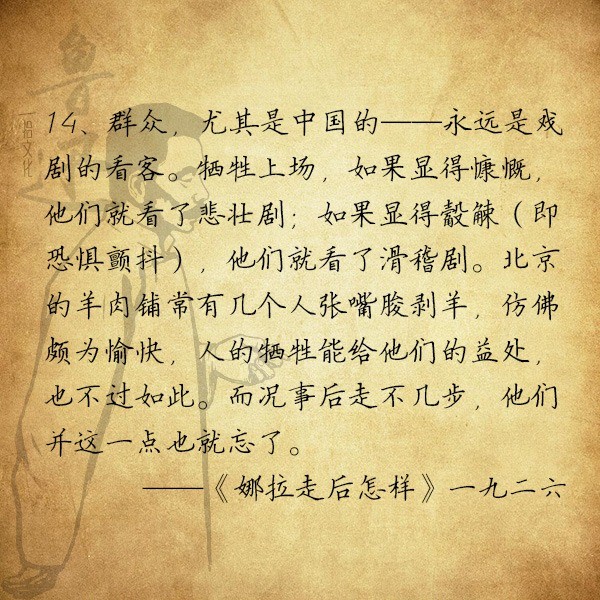 鲁迅
拾文化
14、群众，尤其是中国的——永远是戏
剧的看客。牺牲上场，如果显得慷慨，
他们就看了悲壮剧；如果显得觳觫（即
恐惧颤抖），他们就看了滑稽剧。北京
的羊肉铺常有几个人张嘴朘剥羊，仿佛
颇为愉快，人的牺牲能给他们的益处，
也不过如此。而况事后走不几步，他们
并这一点也就忘了。
——《娜拉走后怎样》一九二六